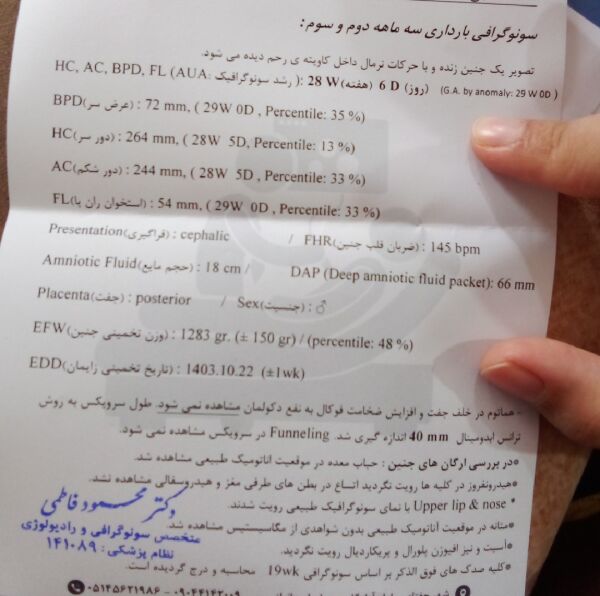 سونوگرافی بارداری سه ماهه دوم و سوم:
تصویر یک جنین زنده و با حرکات نرمال داخل کاویته ی رحم دیده می شود.
HC, AC, BPD, FL (AUA: رشد سونوگرافیک): 28 W(هفته) 6 D (روز) (G.A. by anomaly: 29 W 0D )
BPD(عرض سر) : 72 mm, ( 29W 0D , Percentile: 35 %)
HC(دور سر) : 264 mm, ( 28W 5D, Percentile: 13 %)
AC(دور شکم) : 244 mm, ( 28W 5D , Percentile: 33 %)
FL(استخوان ران پا) : 54 mm, ( 29W 0D , Percentile: 33 %)
Presentation(فراگیری) : cephalic / FHR(ضربان قلب جنین) : 145 bpm
Amniotic Fluid(حجم مایع) : 18 cm / DAP (Deep amniotic fluid packet): 66 mm
Placenta(جفت) : posterior / Sex(جنسیت) : ♂
EFW(وزن تخمینی جنین) : 1283 gr. (± 150 gr) / (percentile: 48 %)
EDD(تاریخ تخمینی زایمان) : 1403.10.22 (±1wk)
- هماتوم در خلف جفت و افزایش ضخامت فوکال به نفع دکولمان مشاهده نمی شود. طول سرویکس به روش
ترانس ابدومینال 40 mm اندازه گیری شد. Funneling در سرویکس مشاهده نمی شود.
*در بررسی ارگان های جنین : حباب معده در موقعیت آناتومیک طبیعی مشاهده شد.
*هیدرونفروز در کلیه ها رویت نگردید اتساع در بطن های طرفی مغز و هیدروسفالی مشاهده نشد.
* Upper lip & nose با نمای سونوگرافیک طبیعی رویت شدند.
*مثانه در موقعیت آناتومیک طبیعی بدون شواهدی از مگاسیستیس مشاهده شد.
*آسیت و نیز افیوژن پلورال و پریکاردیال رویت نگردید.
*کلیه صدک های فوق الذکر بر اساس سونوگرافی 19wk محاسبه و درج گردیده است.
دکتر محمود فاطمی
متخصص سونوگرافی و رادیولوژی
نظام پزشکی: ۱۴۱۰۸۹
۰۵۱۴۵۶۲۱۹۸۶ - ۰۹۰۴۴۱۴۲۰۰۹